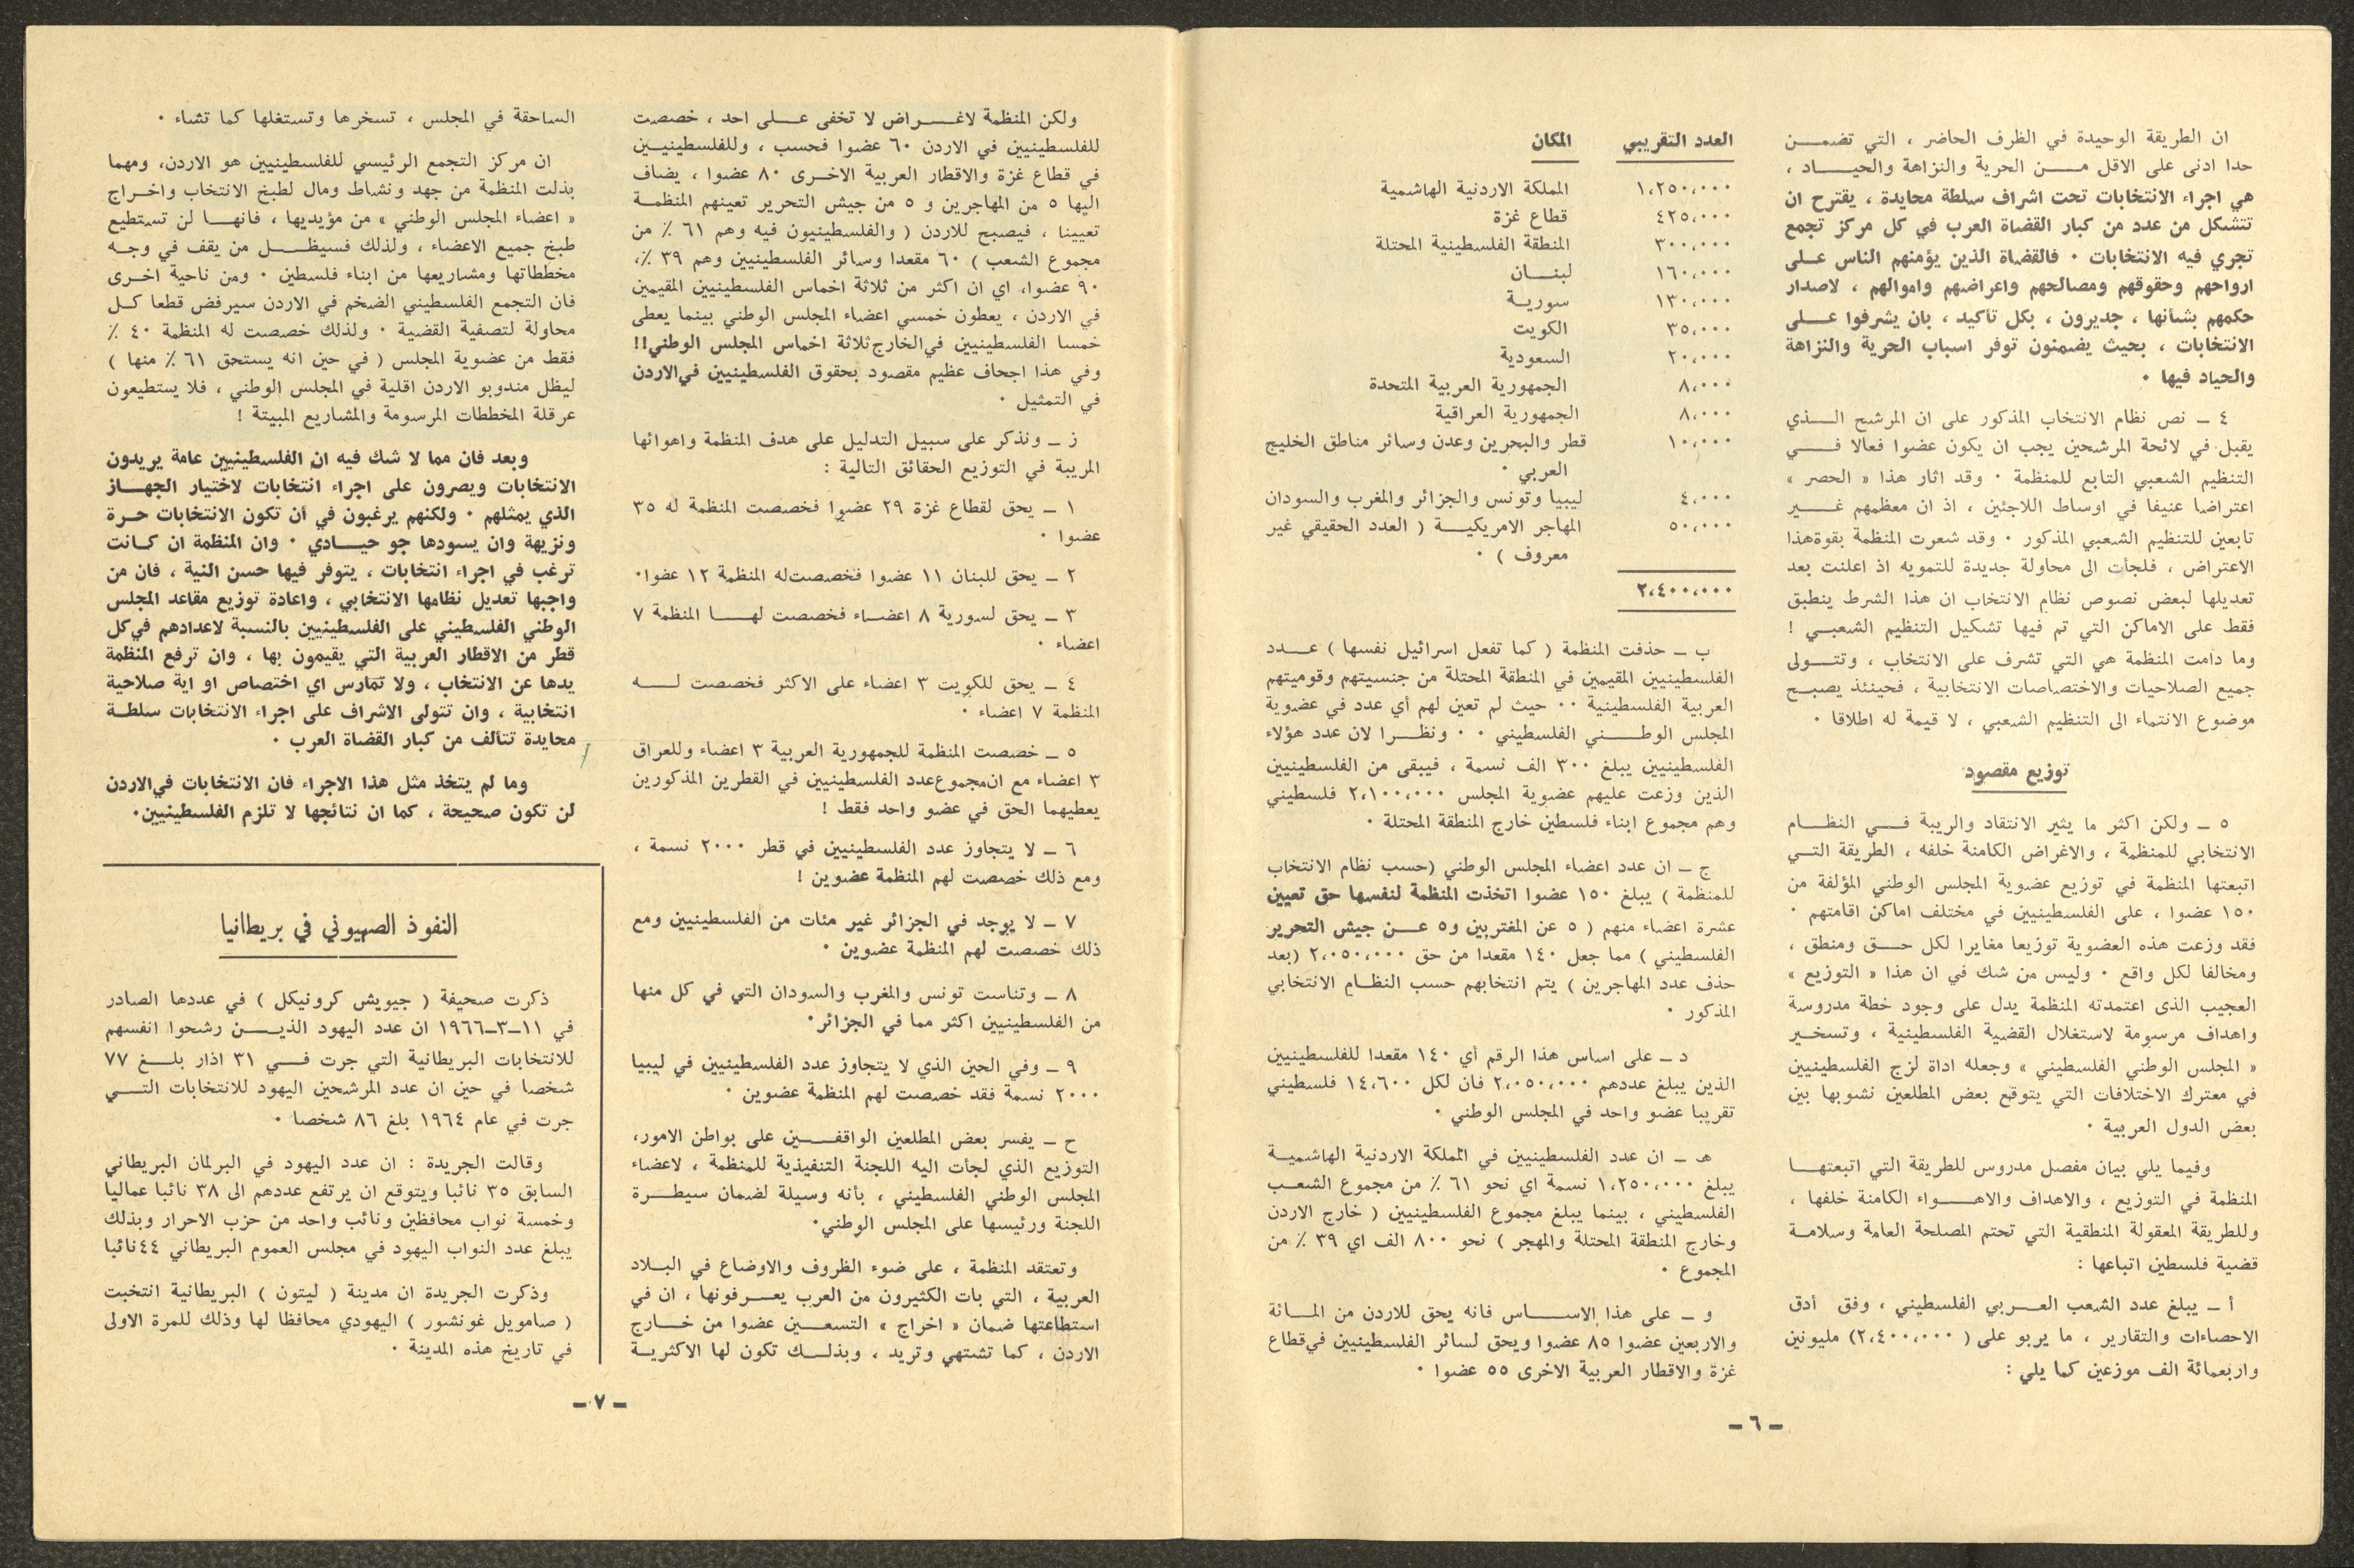 ان الطريقة الوحيدة في الظرف الحاضر ، التي تضمن
حدا ادنى على الاقل من الحرية والنزاهة والحياد ،
هي اجراء الانتخابات تحت اشراف سلطة محايدة ، يقترح ان
تتشكل من عدد من كبار القضاة العرب في كل مركز تجمع
تجري فيه الانتخابات . فالقضاة الذين يؤمنهم الناس على
ارواحهم وحقوقهم ومصالحهم واعراضهم واموالهم ، لاصدار
حكمهم بشأنها ، جديرون ، بكل تأكيد ، بان يشرفوا على
الانتخابات ، بحيث يضمنون توفر اسباب الحرية والنزاهة
والحياد فيها .
٤ – نص نظام الانتخاب المذكور على ان المرشح الذي
يقبل في لائحة المرشحين يجب ان يكون عضوا فعالا في
التنظيم الشعبي التابع للمنظمة . وقد اثار هذا « الحصر »
اعتراضا عنيفا في اوساط اللاجئين ، اذ ان معظمهم غير
تابعين للتنظيم الشعبي المذكور . وقد شعرت المنظمة بقوة هذا
الاعتراض ، فلجأت الى محاولة جديدة للتمويه اذ اعلنت بعد
تعديلها لبعض نصوص نظام الانتخاب ان هذا الشرط ينطبق
فقط على الاماكن التي تم فيها تشكيل التنظيم الشعبي !
وما دامت المنظمة هي التي تشرف على الانتخاب ، وتتولى
جميع الصلاحيات والاختصاصات الانتخابية ، فحينئذ يصبح
موضوع الانتماء الى التنظيم الشعبي ، لا قيمة له اطلاقا .
توزيع مقصود
٥ – ولكن اكثر ما يثير الانتقاد والريبة في النظام
الانتخابي للمنظمة ، والاغراض الكامنة خلفه ، الطريقة التي
اتبعتها المنظمة في توزيع عضوية المجلس الوطني المؤلفة من
١٥٠ عضوا ، على الفلسطينيين في مختلف اماكن اقامتهم .
فقد وزعت هذه العضوية توزيعا مغايرا لكل حق ومنطق ،
ومخالفا لكل واقع . وليس من شك في ان هذا « التوزيع »
العجيب الذى اعتمدته المنظمة يدل على وجود خطة مدروسة
واهداف مرسومة لاستغلال القضية الفلسطينية ، وتسخير
« المجلس الوطني الفلسطيني » وجعله اداة لزج الفلسطينيين
في معترك الاختلافات التي يتوقع بعض المطلعين نشوبها بين
بعض الدول العربية .
وفيما يلي بيان مفصل مدروس للطريقة التي اتبعتها
المنظمة في التوزيع ، والاهداف والاهواء الكامنة خلفها ،
وللطريقة المعقولة المنطقية التي تحتم المصلحة العامة وسلامة
قضية فلسطين اتباعها :
أ – يبلغ عدد الشعب العربي الفلسطيني ، وفق أدق
الاحصاءات والتقارير ، ما يربو على ( ٢،٤٠٠،٠٠٠) مليونين
واربعمائة الف موزعين كما يلي :
العدد التقريبي المكان
١،٢٥٠،٠٠٠ المملكة الاردنية الهاشمية
٤٢٥،٠٠٠ قطاع غزة
٣٠٠،٠٠٠ المنطقة الفلسطينية المحتلة
١٦٠،٠٠٠ لبنان
١٣٠،٠٠٠ سورية
٣٥،٠٠٠ الكويت
٢٠،٠٠٠ السعودية
٨،٠٠٠ الجمهورية العربية المتحدة
٨،٠٠٠ الجمهورية العراقية
١٠،٠٠٠ قطر والبحرين وعدن وسائر مناطق الخليج
العربي .
٤،٠٠٠ ليبيا وتونس والجزائر والمغرب والسودان
٥٠،٠٠٠ المهاجر الامريكية ( العدد الحقيقي غير
معروف ) .
٢،٤٠٠،٠٠٠
ب – حذفت المنظمة ( كما تفعل اسرائيل نفسها ) عدد
الفلسطينيين المقيمين في المنطقة المحتلة من جنسيتهم وقوميتهم
العربية الفلسطينية .. حيث لم تعين لهم أي عدد في عضوية
المجلس الوطني الفلسطيني . . ونظرا لان عدد هؤلاء
الفلسطينيين يبلغ ٣٠٠ الف نسمة ، فيبقى من الفلسطينيين
الذين وزعت عليهم عضوية المجلس ٢،١٠٠،٠٠٠ فلسطيني
وهم مجموع ابناء فلسطين خارج المنطقة المحتلة .
ج – ان عدد اعضاء المجلس الوطني (حسب نظام الانتخاب
للمنظمة ) يبلغ ١٥٠ عضوا اتخذت المنظمة لنفسها حق تعيين
عشرة اعضاء منهم ( ٥ عن المغتربين و٥ عن جيش التحرير
الفلسطيني ) مما جعل ١٤٠ مقعدا من حق ٢،٠٥٠،٠٠٠ (بعد
حذف عدد المهاجرين ) يتم انتخابهم حسب النظام الانتخابي
المذكور .
د – على اساس هذا الرقم أي ١٤٠ مقعدا للفلسطينيين
الذين يبلغ عددهم ٢،٠٥٠،٠٠٠ فان لكل ١٤،٦٠٠ فلسطيني
تقريبا عضو واحد في المجلس الوطني .
هـ – ان عدد الفلسطينيين في المملكة الاردنية الهاشمية
يبلغ ١،٢٥٠،٠٠٠ نسمة اي نحو ٦١ ٪ من مجموع الشعب
الفلسطيني ، بينما يبلغ مجموع الفلسطينيين ( خارج الاردن
وخارج المنطقة المحتلة والمهجر ) نحو ٨٠٠ الف اي ٣٩ ٪ من
المجموع .
و – على هذا الاساس فانه يحق للاردن من المائة
والاربعين عضوا ٨٥ عضوا ويحق لسائر الفلسطينيين في قطاع
غزة والاقطار العربية الاخرى ٥٥ عضوا .
– ٦ –
ولكن المنظمة لاغراض لا تخفى على احد ، خصصت
للفلسطينيين في الاردن ٦٠ عضوا فحسب ، وللفلسطينيين
في قطاع غزة والاقطار العربية الاخرى ٨٠ عضوا ، يضاف
اليها ٥ من المهاجرين و ٥ من جيش التحرير تعينهم المنظمة
تعيينا ، فيصبح للاردن ( والفلسطينيون فيه وهم ٦١ ٪ من
مجموع الشعب ) ٦٠ مقعدا وسائر الفلسطينيين وهم ٣٩ ٪،
٩٠ عضوا، اي ان اكثر من ثلاثة اخماس الفلسطينيين المقيمين
في الاردن ، يعطون خمسي اعضاء المجلس الوطني بينما يعطى
خمسا الفلسطينيين في الخارج ثلاثة اخماس المجلس الوطني!!
وفي هذا اجحاف عظيم مقصود بحقوق الفلسطينيين في الاردن
في التمثيل .
ز – ونذكر على سبيل التدليل على هدف المنظمة واهوائها
المريبة في التوزيع الحقائق التالية :
١ – يحق لقطاع غزة ٢٩ عضوا فخصصت المنظمة له ٣٥
عضوا .
٢ – يحق للبنان ١١ عضوا فخصصت له المنظمة ١٢ عضوا.
٣ – يحق لسورية ٨ اعضاء فخصصت لها المنظمة ٧
اعضاء .
٤ – يحق للكويت ٣ اعضاء على الاكثر فخصصت له
المنظمة ٧ اعضاء .
٥ – خصصت المنظمة للجمهورية العربية ٣ اعضاء وللعراق
٣ اعضاء مع ان مجموع عدد الفلسطينيين في القطرين المذكورين
يعطيهما الحق في عضو واحد فقط !
٦ – لا يتجاوز عدد الفلسطينيين في قطر ٢٠٠٠ نسمة ،
ومع ذلك خصصت لهم المنظمة عضوين !
٧ – لا يوجد في الجزائر غير مئات من الفلسطينيين ومع
ذلك خصصت لهم المنظمة عضوين .
٨ – وتناست تونس والمغرب والسودان التي في كل منها
من الفلسطينيين اكثر مما في الجزائر.
٩ – وفي الحين الذي لا يتجاوز عدد الفلسطينيين في ليبيا
٢٠٠٠ نسمة فقد خصصت لهم المنظمة عضوين .
ح – يفسر بعض المطلعين الواقفين على بواطن الامور،
التوزيع الذي لجأت اليه اللجنة التنفيذية للمنظمة ، لاعضاء
المجلس الوطني الفلسطيني ، بأنه وسيلة لضمان سيطرة
اللجنة ورئيسها على المجلس الوطني.
وتعتقد المنظمة ، على ضوء الظروف والاوضاع في البلاد
العربية ، التي بات الكثيرون من العرب يعرفونها ، ان في
استطاعتها ضمان « اخراج » التسعين عضوا من خارج
الاردن ، كما تشتهي وتريد ، وبذلك تكون لها الاكثرية
الساحقة في المجلس ، تسخرها وتستغلها كما تشاء .
ان مركز التجمع الرئيسي للفلسطينيين هو الاردن، ومهما
بذلت المنظمة من جهد ونشاط ومال لطبخ الانتخاب واخراج
« اعضاء المجلس الوطني » من مؤيديها ، فانها لن تستطيع
طبخ جميع الاعضاء ، ولذلك فسيظل من يقف في وجه
مخططاتها ومشاريعها من ابناء فلسطين . ومن ناحية اخرى
فان التجمع الفلسطيني الضخم في الاردن سيرفض قطعا كل
محاولة لتصفية القضية . ولذلك خصصت له المنظمة ٤٠ ٪
فقط من عضوية المجلس ( في حين انه يستحق ٦١ ٪ منها )
ليظل مندوبو الاردن اقلية في المجلس الوطني ، فلا يستطيعون
عرقلة المخططات المرسومة والمشاريع المبيتة !
وبعد فان مما لا شك فيه ان الفلسطينيين عامة يريدون
الانتخابات ويصرون على اجراء انتخابات لاختيار الجهاز
الذي يمثلهم . ولكنهم يرغبون في أن تكون الانتخابات حرة
ونزيهة وان يسودها جو حيادي . وان المنظمة ان كانت
ترغب في اجراء انتخابات ، يتوفر فيها حسن النية ، فان من
واجبها تعديل نظامها الانتخابي ، واعادة توزيع مقاعد المجلس
الوطني الفلسطيني على الفلسطينيين بالنسبة لاعدادهم في كل
قطر من الاقطار العربية التي يقيمون بها ، وان ترفع المنظمة
يدها عن الانتخاب ، ولا تمارس اي اختصاص او اية صلاحية
انتخابية ، وان تتولى الاشراف على اجراء الانتخابات سلطة
محايدة تتألف من كبار القضاة العرب .
وما لم يتخذ مثل هذا الاجراء فان الانتخابات في الاردن
لن تكون صحيحة ، كما ان نتائجها لا تلزم الفلسطينيين.
النفوذ الصهيوني في بريطانيا
ذكرت صحيفة ( جيويش كرونيكل ) في عددها الصادر
في ١١–٣–١٩٦٦ ان عدد اليهود الذين رشحوا انفسهم
للانتخابات البريطانية التي جرت في ٣١ اذار بلغ ٧٧
شخصا في حين ان عدد المرشحين اليهود للانتخابات التي
جرت في عام ١٩٦٤ بلغ ٨٦ شخصا .
وقالت الجريدة : ان عدد اليهود في البرلمان البريطاني
السابق ٣٥ نائبا ويتوقع ان يرتفع عددهم الى ٣٨ نائبا عماليا
وخمسة نواب محافظين ونائب واحد من حزب الاحرار وبذلك
يبلغ عدد النواب اليهود في مجلس العموم البريطاني ٤٤ نائبا
وذكرت الجريدة ان مدينة ( ليتون ) البريطانية انتخبت
( صامويل غونشور ) اليهودي محافظا لها وذلك للمرة الاولى
في تاريخ هذه المدينة .
– ٧ –